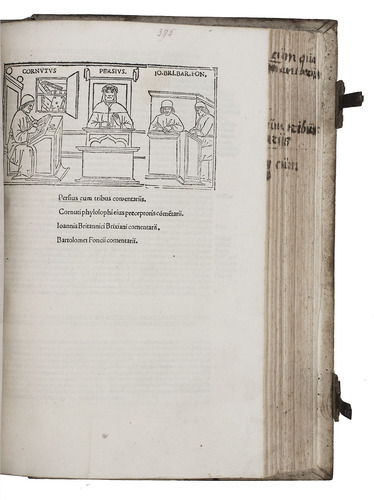 375
CORNVTVS PERSIVS. IO.BRI.BAR.FON.
Persius cum tribus comentariis.
Cornuti phylosophi eius præceptoris cōmētarii.
Ioannis Britannici Brixiani comentarii.
Bartolomei Foncii comentarii.
cum
cum